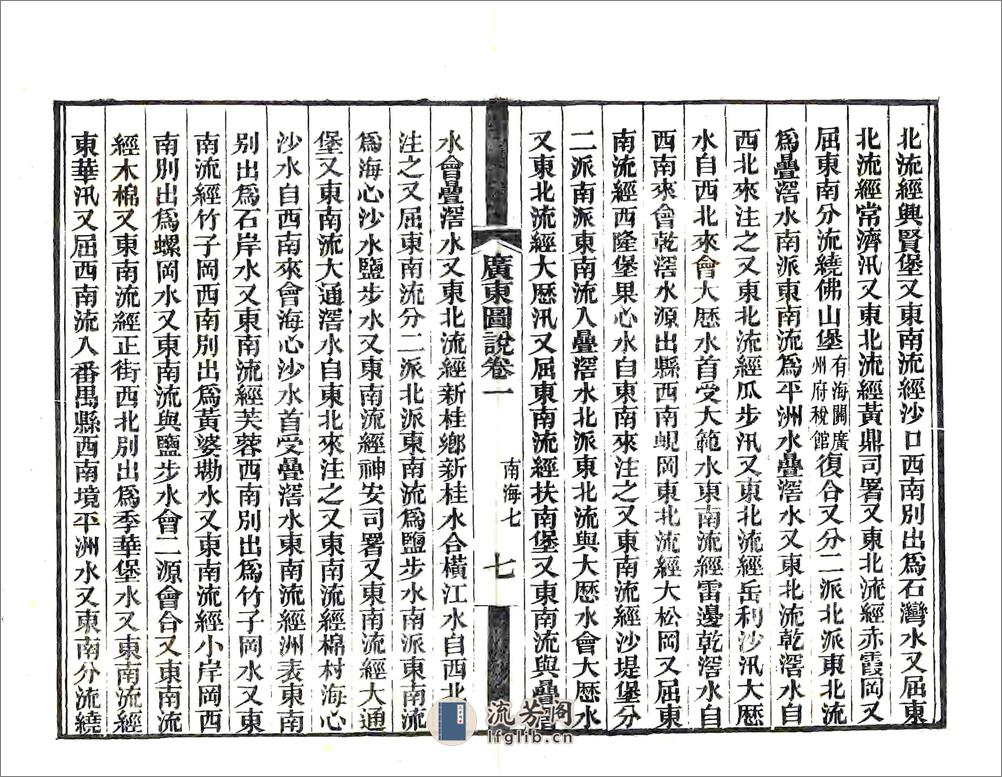 北流經興賢堡又東南流經沙口西南別出爲石灣水又屈東
北流經常濟汛又東北流經黃鼎司署又東北流經赤霞岡又
屈東南分流繞佛山堡有海關廣州府稅館復合又分二派北派東北流
爲疊滘水南派東南流爲平洲水疊滘水又東北流乾滘水自
西北來注之又東北流經瓜步汛又東北流經岳利沙汛大歷
水自西北來會大歷水首受大範水東南流經雷邊乾滘水自
西南來會乾滘水源出縣西南蜆岡東北流經大松岡又屈東
南流經西隆堡果心水自東南來注之又東南流經沙堤堡分
二派南派東南流入疊滘水北派東北流與大歷水會大歷水
又東北流經大歷汛又屈東南流經扶南堡又東南流與疊滘
廣東圖說卷一
南海七
七
水會疊滘水又東北流經新桂鄉新桂水合橫江水自西北
注之又屈東南流分二派北派東南流爲鹽步水南派東南流
爲海心沙水鹽步水又東南流經神安司署又東南流經大通
堡又東南流大通滘水自東北來注之又東南流經棉村海心
沙水自西南來會海心沙水首受疊滘水東南流經洲表東南
別出爲石岸水又東南流經芙蓉西南別出爲竹子岡水又東
南流經竹子岡西南別出爲黃婆㘭水又東南流經小岸岡西
南別出爲螺岡水又東南流與鹽步水會二源會合又東南流
經木棉又東南流經正街西北別出爲季華堡水又東南流經
東華汛又屈西南流入番禺縣西南境平洲水又東南分流繞
流芳阁
lfglib.cn